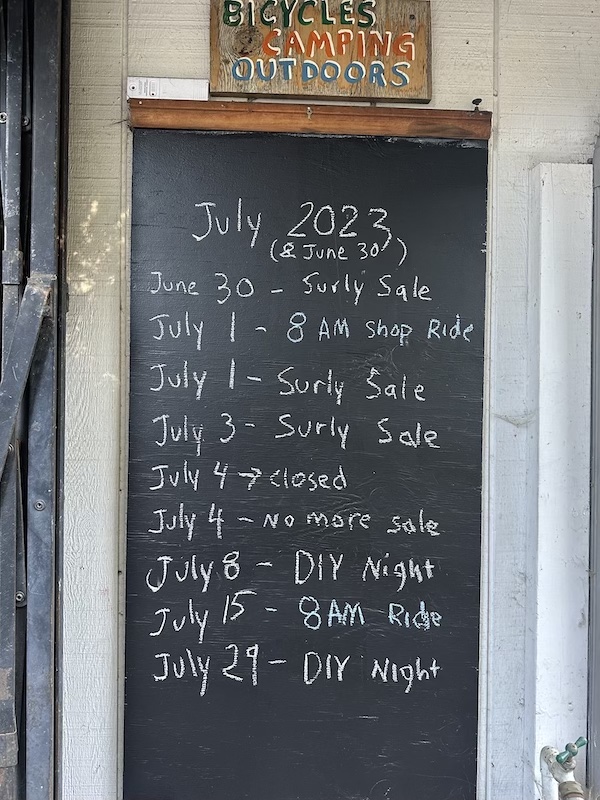 BICYCLES
CAMPING
OUTDOORS
July 2023
(& June 30)
June 30 - Surly Sale
July 1 - 8 AM Shop Ride
July 1 - Surly Sale
July 3 - Surly Sale
July 4 → closed
July 4 - No more sale
July 8 - DIY Night
July 15 - 8AM Ride
July 29 - DIY Night